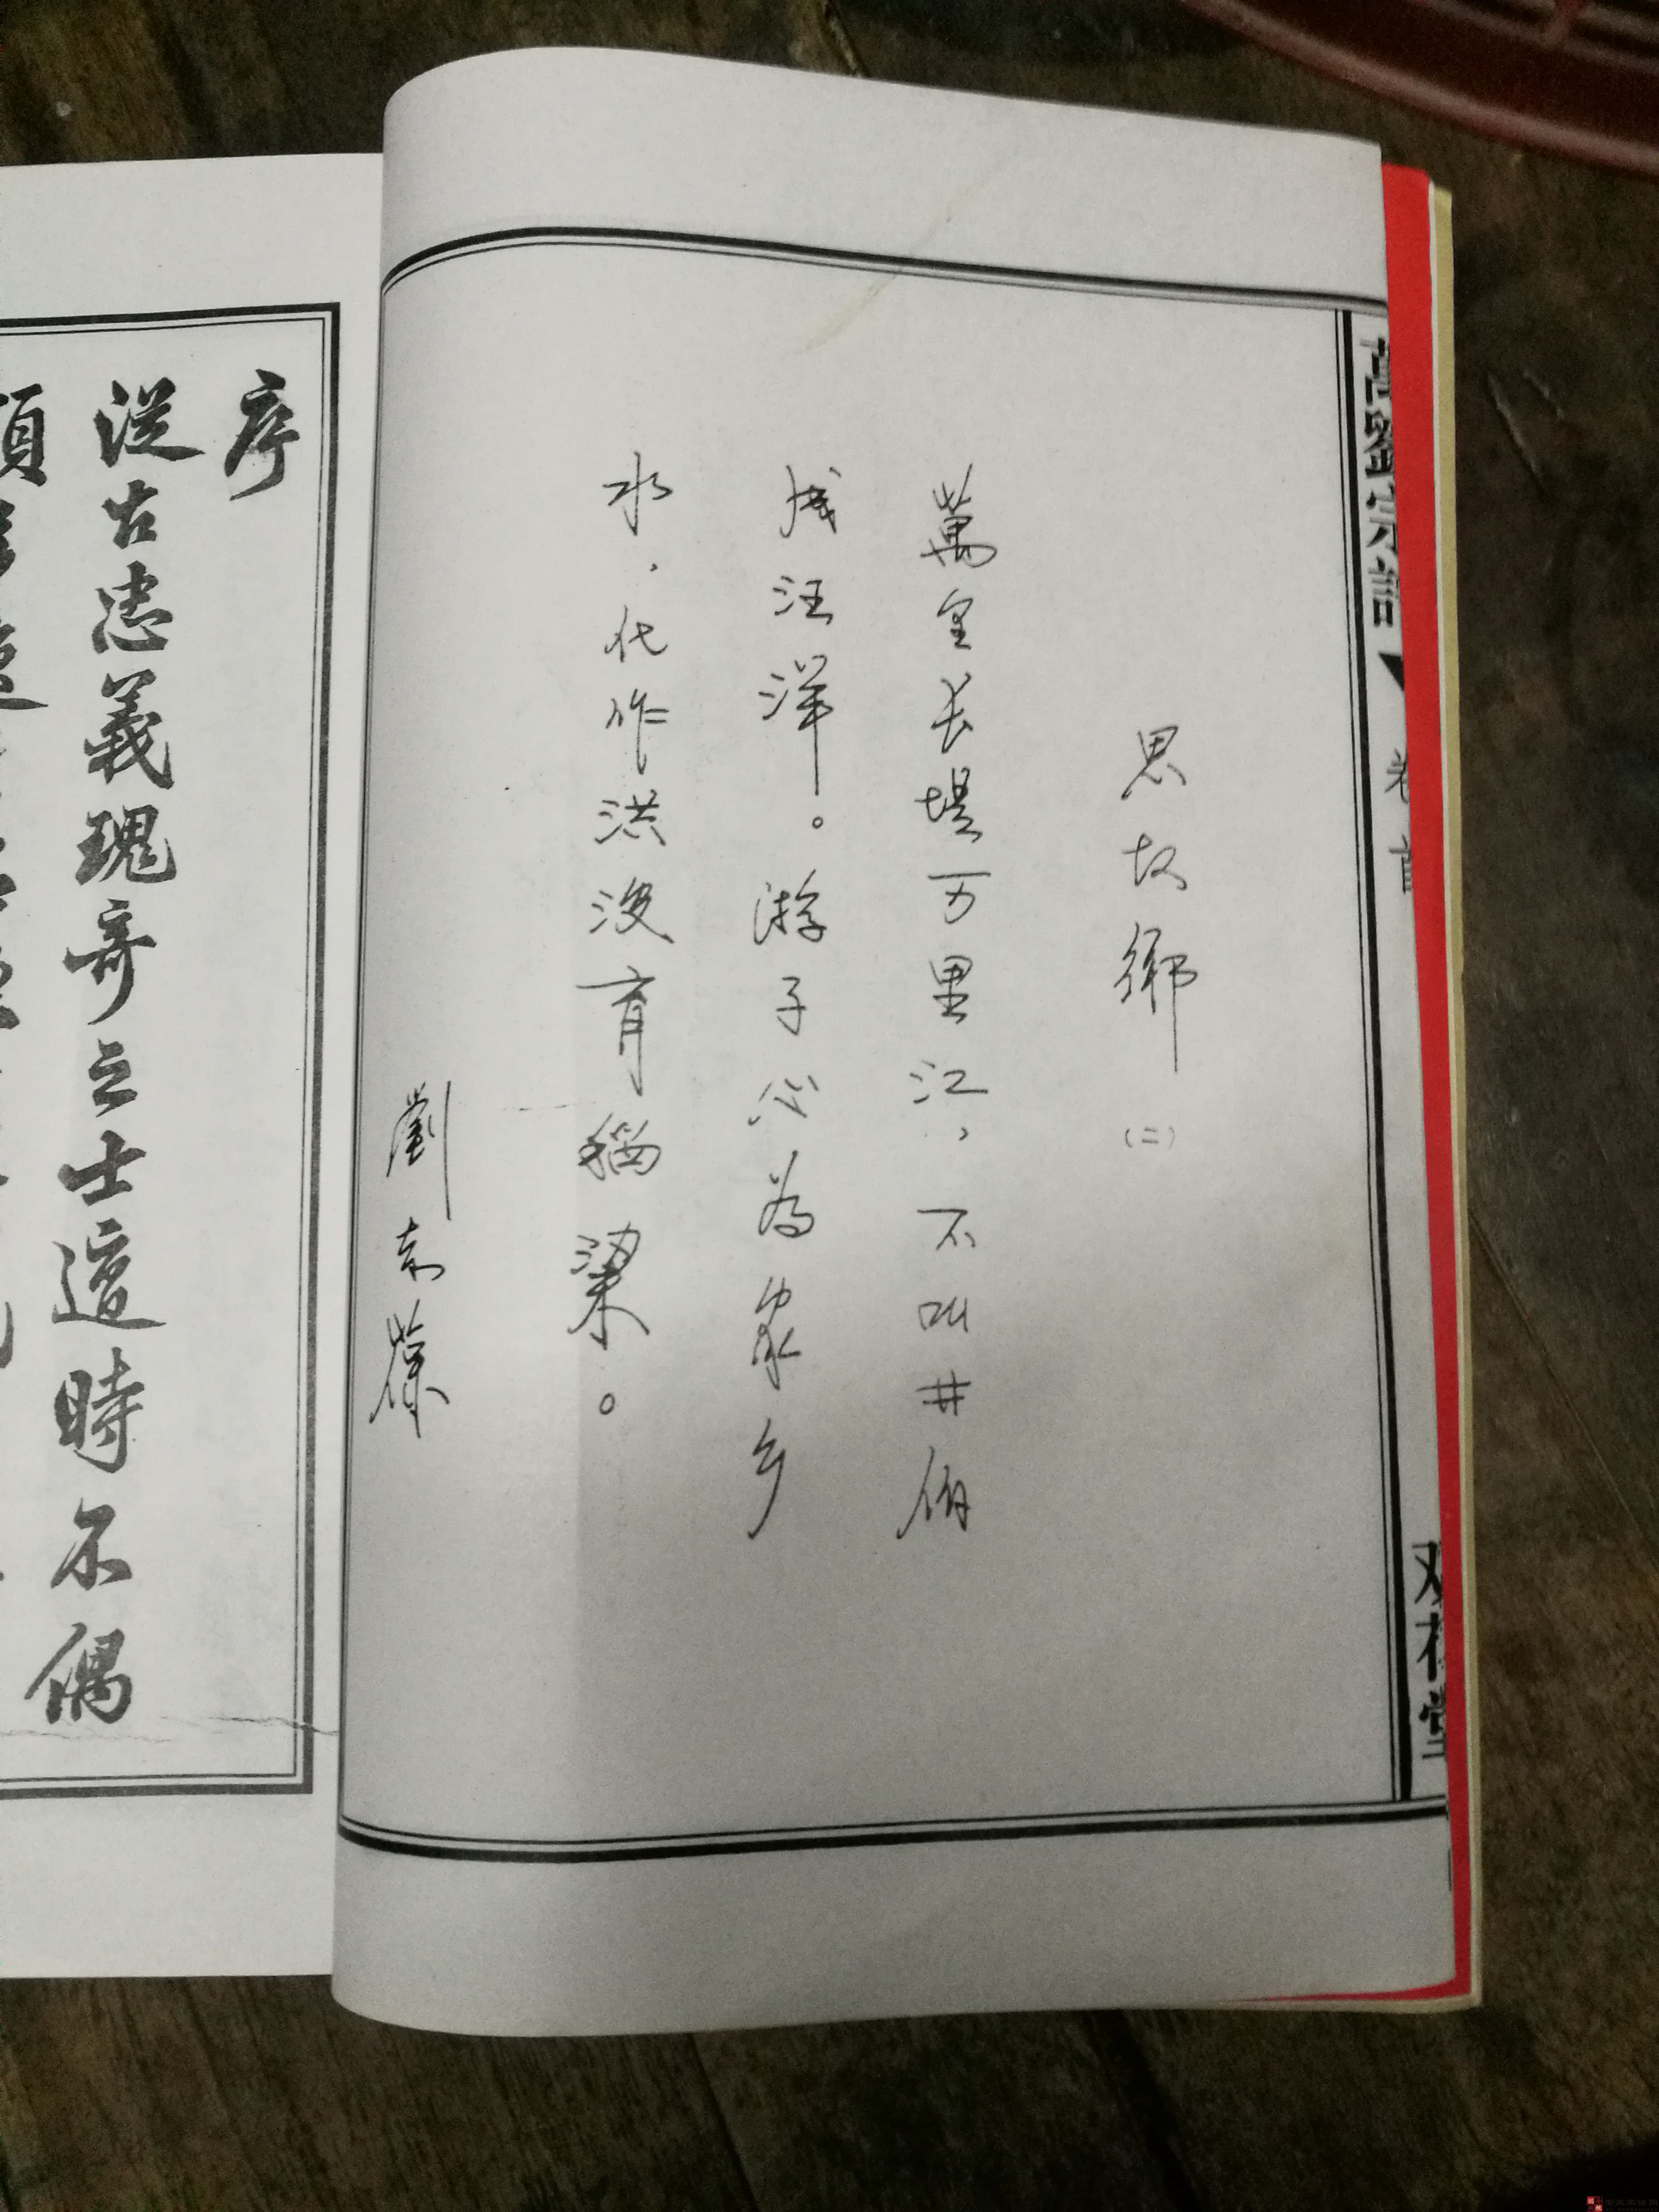 宗譜
卷首
思故鄉 (二)
萬里长堤万里江,不叫井
成汪洋。游子心為家乡
水,化作洪波育稻粱。
劉
序
從古忠義瑰奇之士遭時不偶